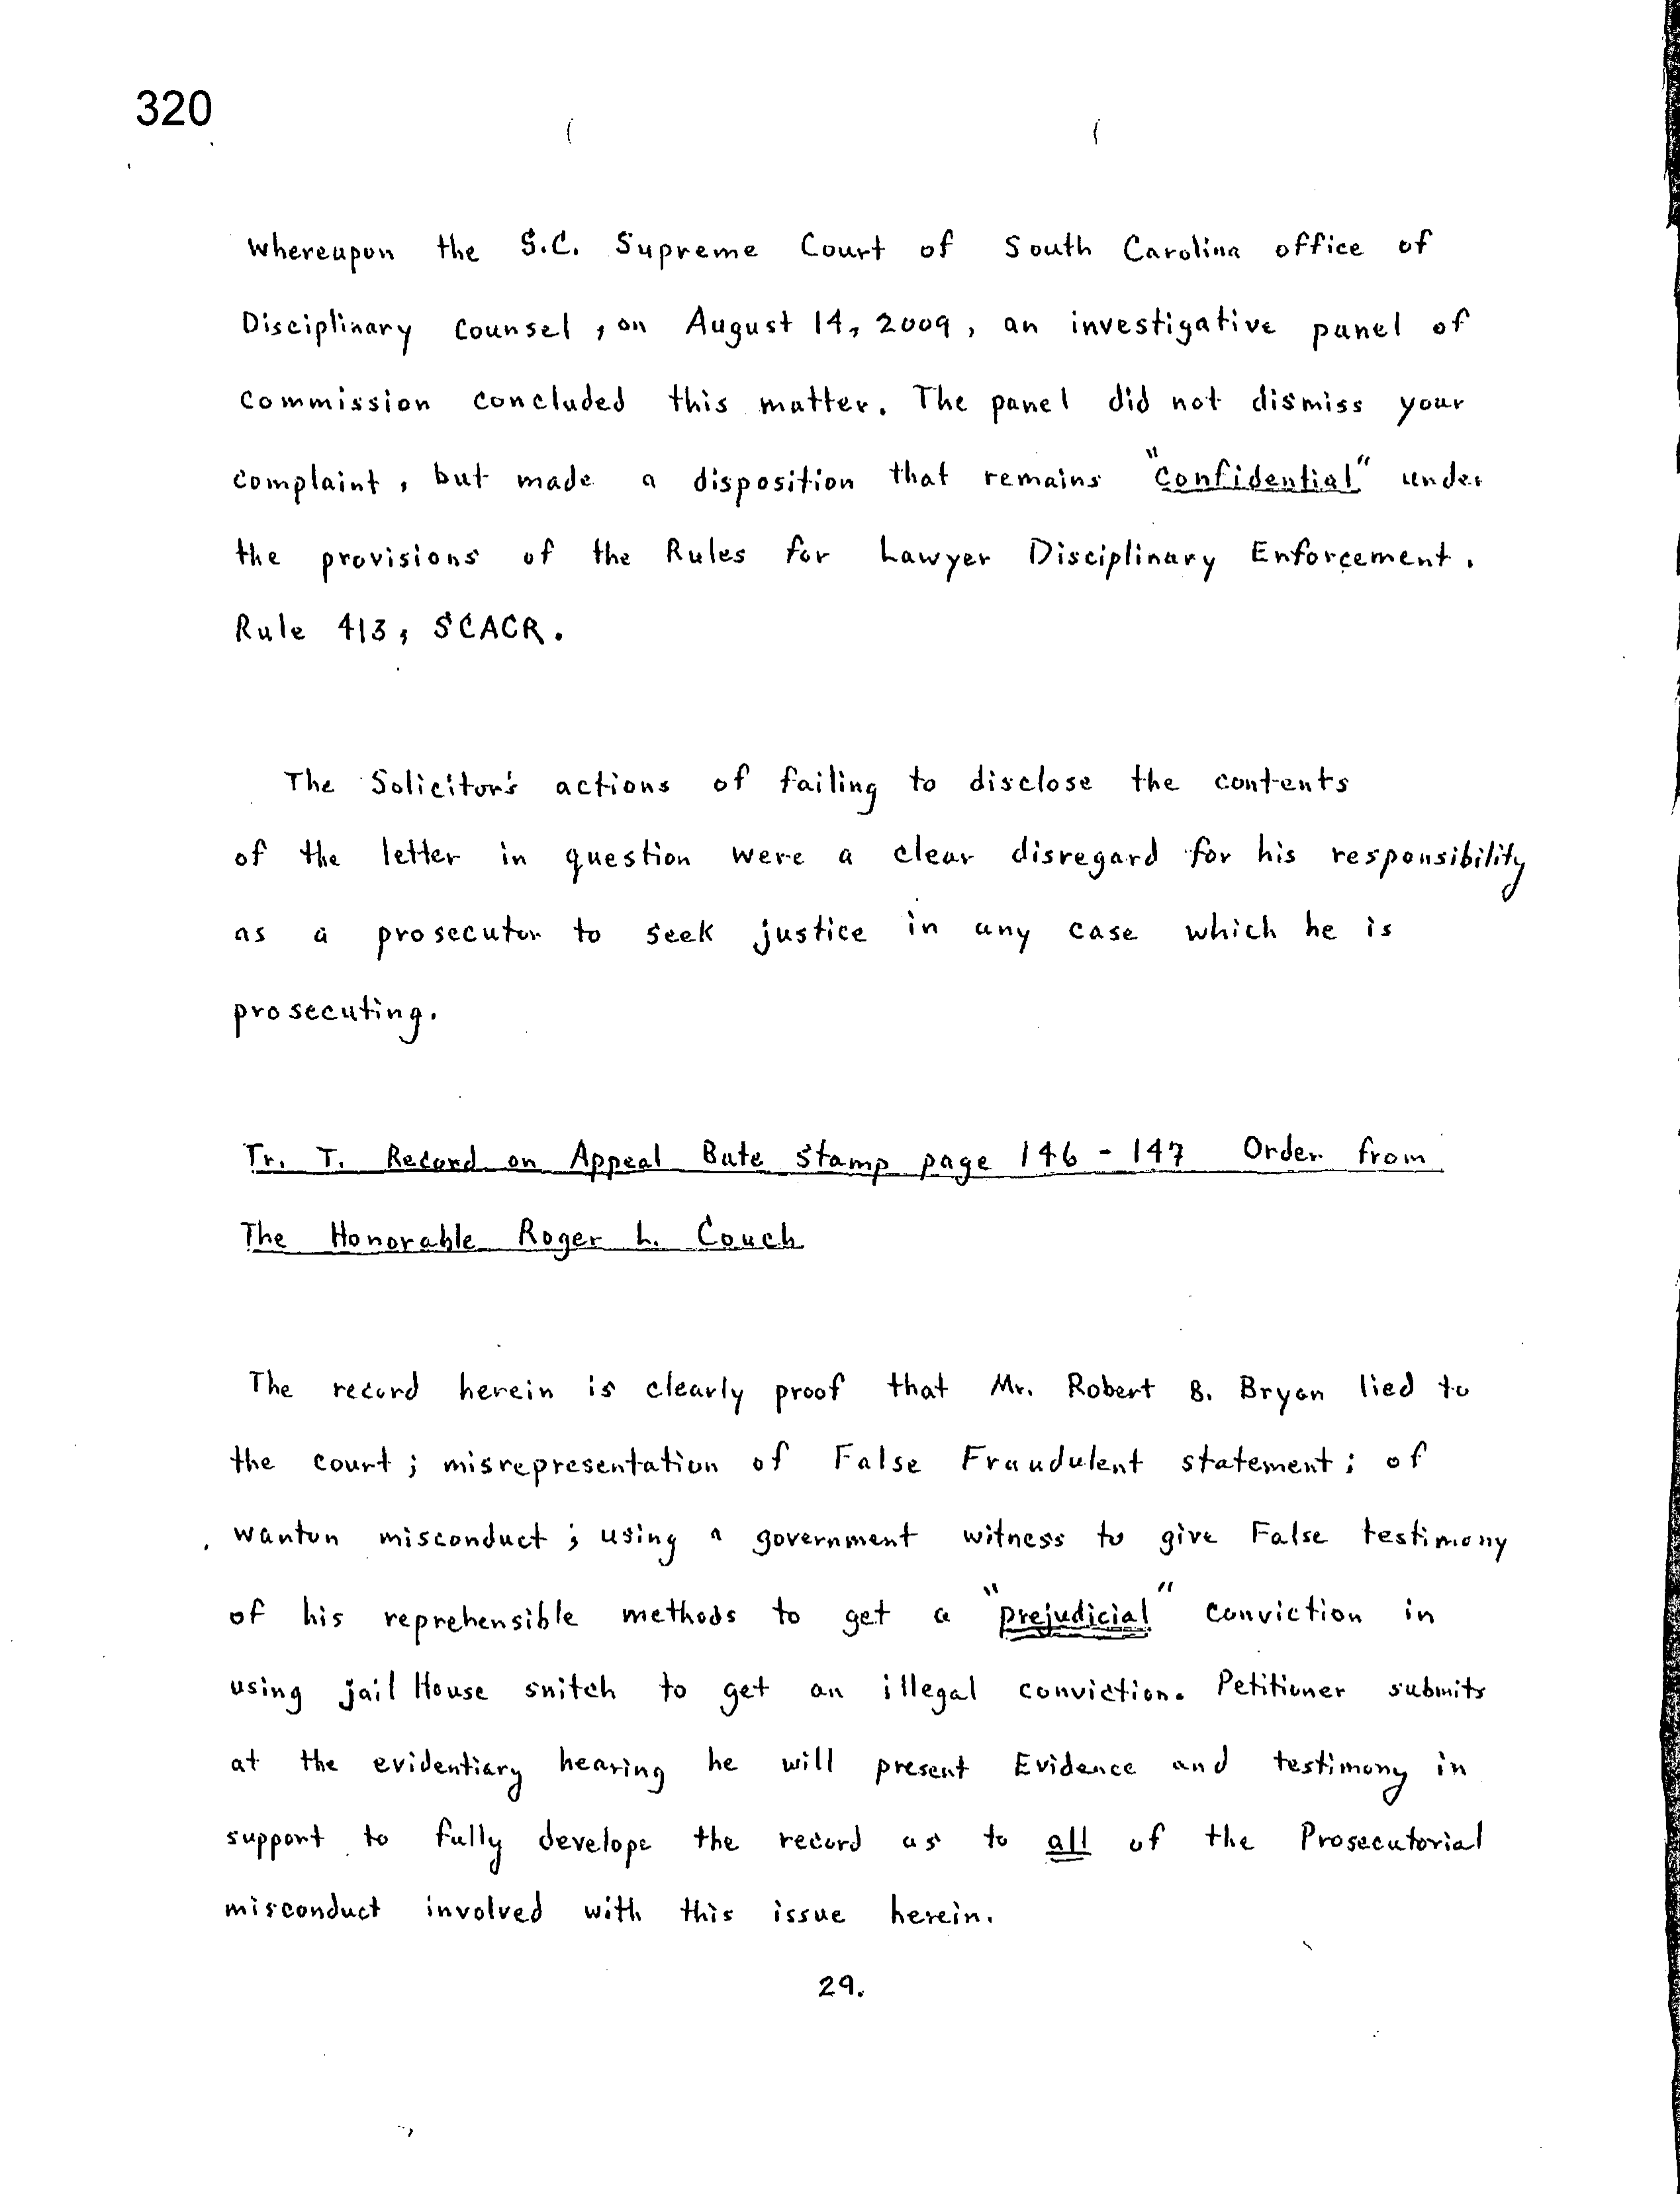 320
whereupon the S.C. Supreme Court of South Carolina office of
Disciplinary counsel, on August 14, 2009, an investigative panel of
commission concluded this matter. The panel did not dismiss your
complaint, but made a disposition that remains "confidential" under
the provisions of the Rules for Lawyer Disciplinary Enforcement.
Rule 413, SCACR.
The Solicitor's actions of failing to disclose the contents
of the letter in question were a clear disregard for his responsibility
as a prosecutor to seek justice in any case which he is
prosecuting.
Tr. T. Record on Appeal Bate stamp page 146 - 147 Order from
The Honorable Roger L. Couch
The record herein is clearly proof that Mr. Robert B. Bryan lied to
the court; misrepresentation of False Fraudulent statement; of
wanton misconduct; using a government witness to give False testimony
of his reprehensible methods to get a "prejudicial" conviction in
using jail House snitch to get an illegal conviction. Petitioner submits
at the evidentiary hearing he will present Evidence and testimony in
support to fully develope the record as to all of the Prosecutorial
misconduct involved with this issue herein.
29.